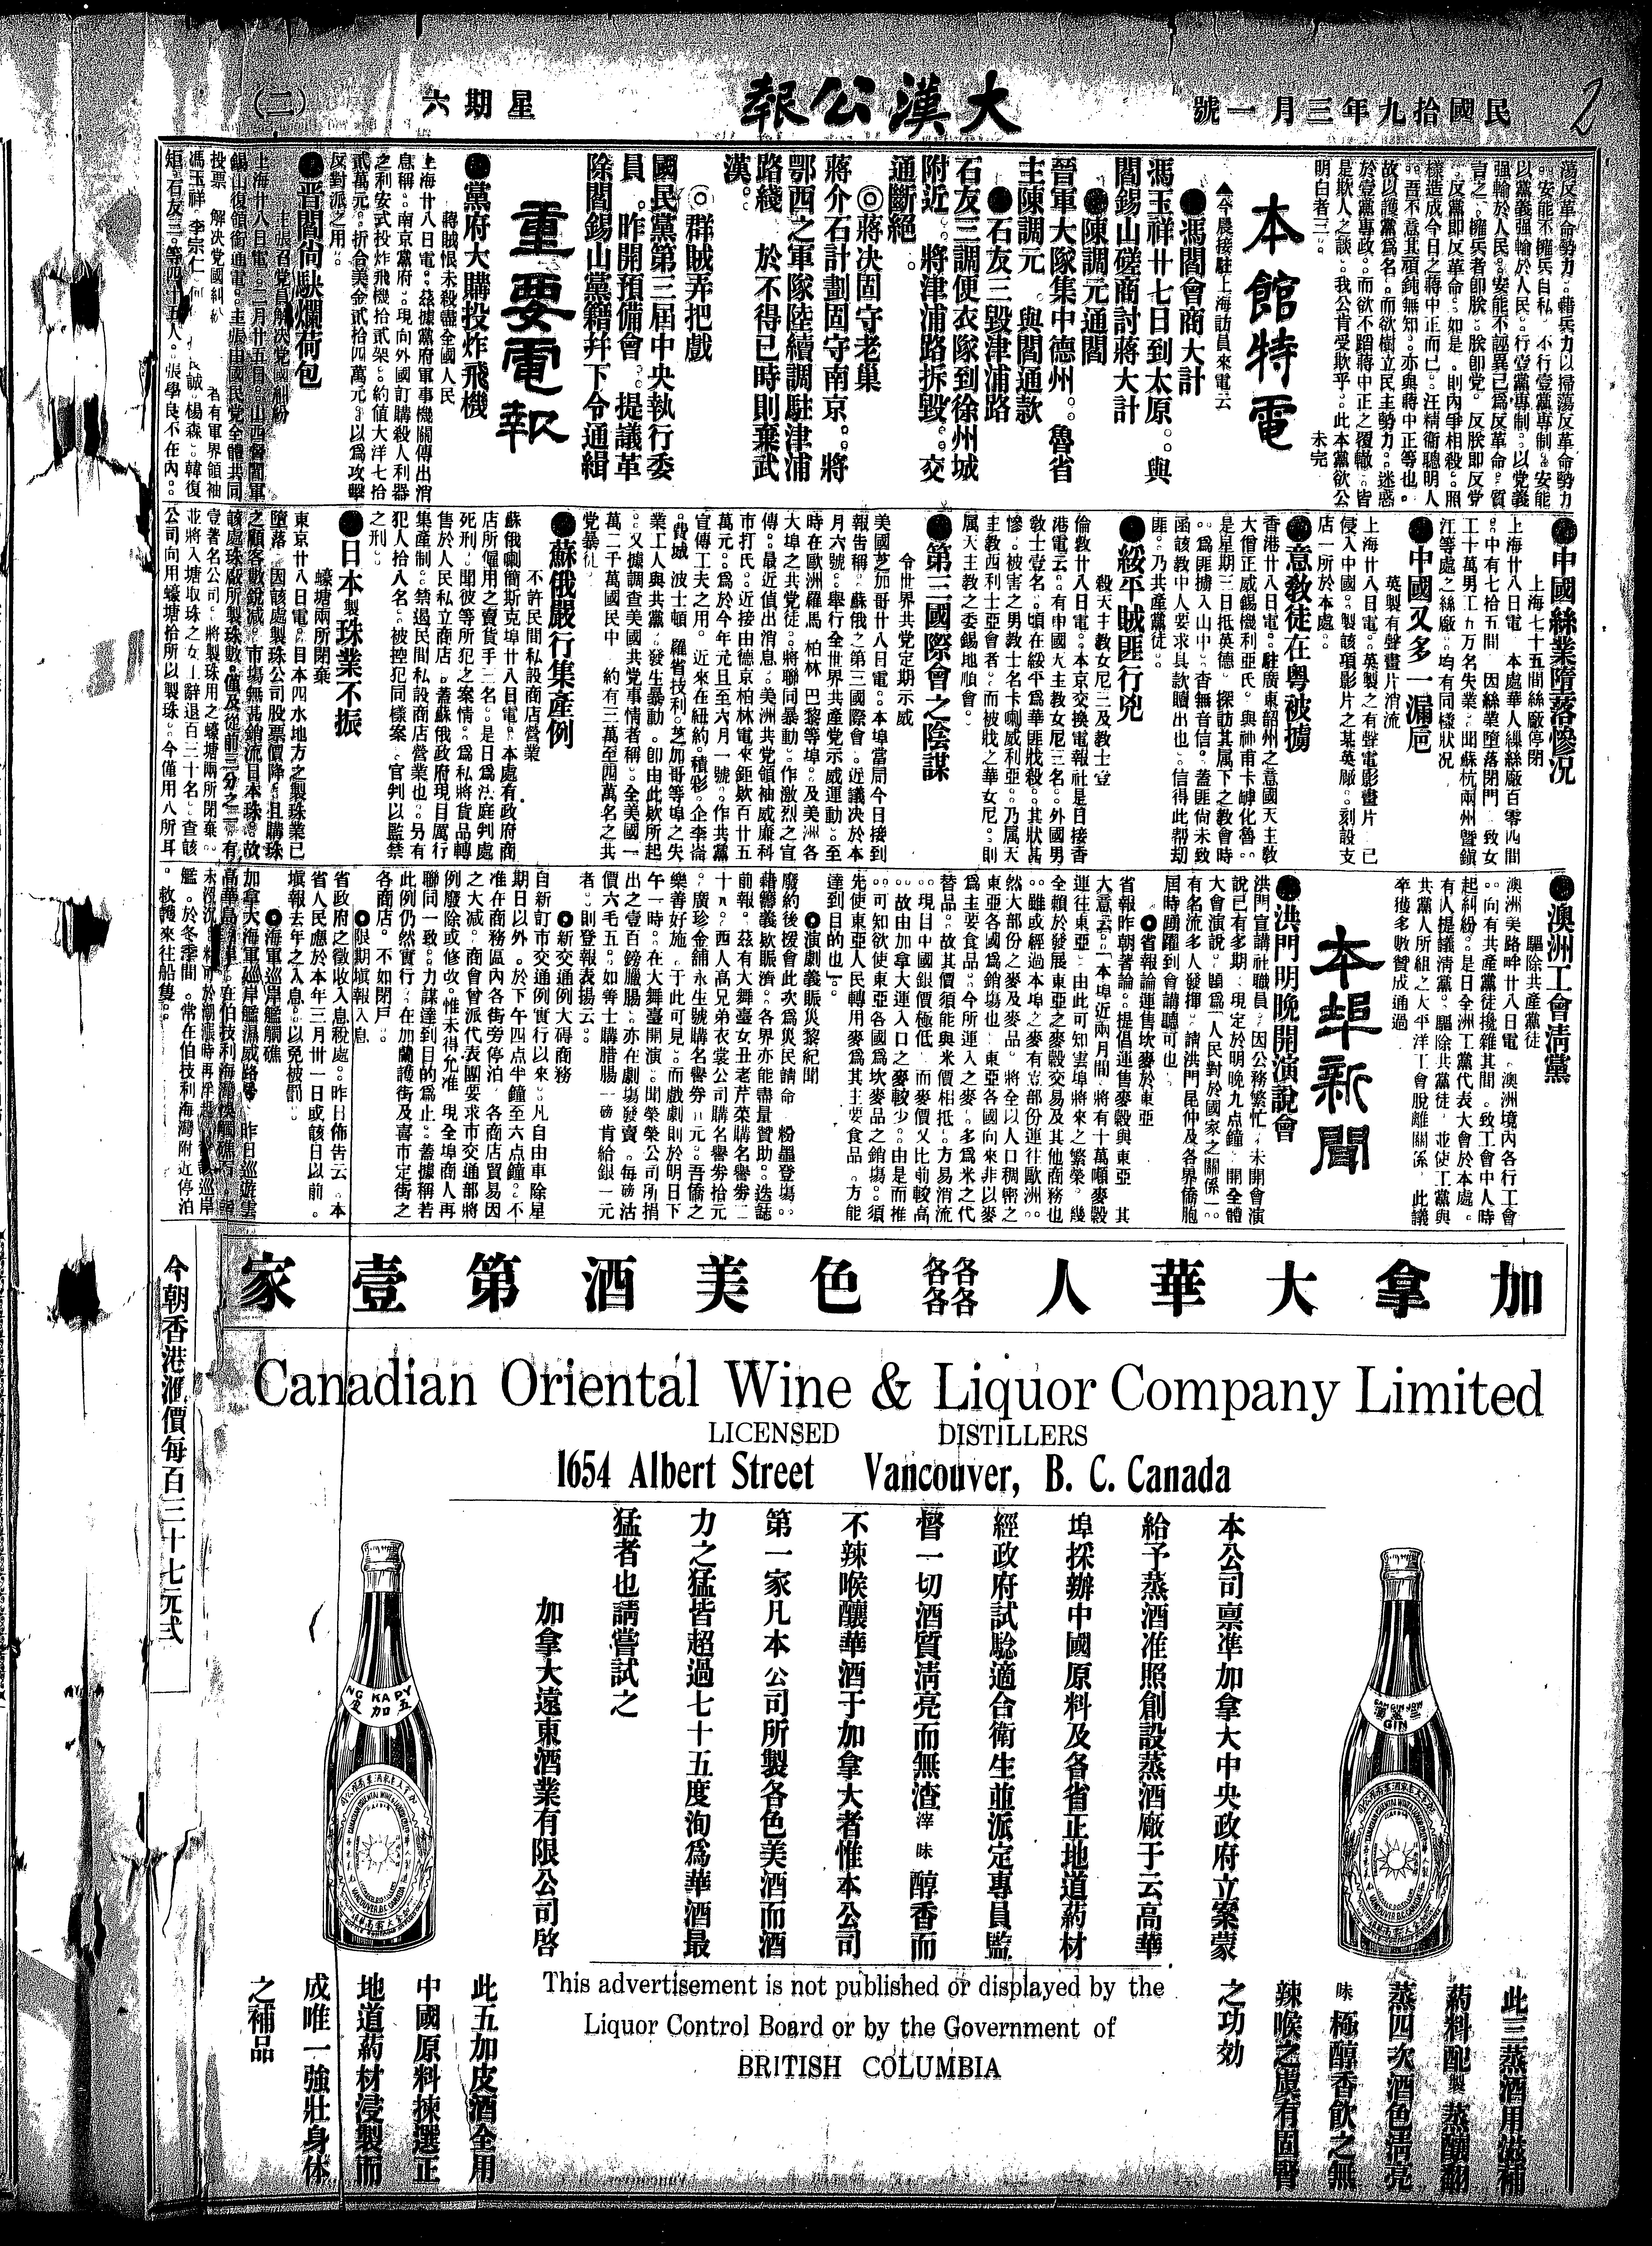 民國拾九年三月一號
大漢公報
星期六
(二)
蕩反革命勢力。藉兵力以掃蕩反革命勢力
。安能不擁兵自私。不行壹黨專制。安能
以黨義强輸於人民。行壹黨專制。以党義
强輸於人民。安能不誣異已爲反革命。質
言之。擁兵者卽朕。朕卽党。反朕卽反党
。反黨卽反革命。如是。則內爭相殺。照
樣造成今日之蔣中正而已。汪精衛聰明人
。吾不意其頑鈍無知。亦與蔣中正等也。
故以護黨爲名。而欲樹立民主勢力。迷惑
於壹黨專政。而欲不蹈蔣中正之覆轍。皆
是欺人之談。我公肯受欺乎。此本黨欲公
明白者三。
未完
本館特電
▲今晨接駐上海訪員來電云
●馮閻會商大計
馮玉祥廿七日到太原。與
閻錫山磋商討蔣大計
●陳調元通閻
晉軍大隊集中德州。魯省
主陳調元 與閻通款
●石友三毀津浦路
石友三調便衣隊到徐州城
附近 將津浦路拆毀 交
通斷絕。
◎蔣決固守老巢
蔣介石計劃固守南京。將
鄂西之軍隊陸續調駐津浦
路綫 於不得已時則棄武
漢。
◎群賊弄把戲
國民黨第三屆中央執行委
員 昨開預備會 提議革
除閻錫山黨籍幷下令通緝
重要電報
●黨府大購投炸飛機
蔣賊恨未殺盡全國人民
上海廿八日電。茲據黨府軍事機關傳出消
息稱。南京黨府。現向外國訂購殺人利器
之利安式投炸飛機拾貳架。約值大洋七拾
貳萬元。折合美金貳拾四萬元。以爲攻擊
反對派之用。
●晋閻尙馱爛荷包
主張召党員解決党國糾紛
上海廿八日電。二月廿五日。山西督閻軍
錫山復領銜通電。主張由國民党全體共同
投票 解决党國糾紛
者有軍界領袖
馮玉祥 李宗仁 楊森。韓復
矩。石友三。等四十五人。張學良不在內。
●中國絲業墮落慘况
上海七十五間絲廠停閉
上海廿八日電 本處華人繅絲廠百零四間
。中有七拾五間 因絲業墮落閉門 致女
工十萬男工五万名失業。聞蘇杭兩州曁鎭
江等處之絲廠。均有同樣狀况
●中國又多一漏巵
英製有聲畫片消流
上海廿八日電。英製之有聲電影畫片 已
侵入中國。製該項影片之某英厰。刻設支
店一所於本處。
●意教徒在粤被擄
香港廿八日電。駐廣東韶州之意國天主教
大僧正威錫機利亞氏。與神甫卡罅化魯。
是星期三日抵英德。探訪其属下之教會時
。爲匪擄入山中。杳無音信。蓋匪尙未致
函該教中人要求具款贖出也。信得此帮刼
匪。乃共產黨徒。
●綏平賊匪行兇
殺天主教女尼三及教士壹
倫敦廿八日電。本京交換電報社是日接香
港電云。有中國天主教女尼三名。外國男
敎士壹名。頃在綏平爲華匪戕殺。其狀甚
慘。被害之男教士名卡喇威利亞。乃属天
主教西利士亞會者。而被戕之華女尼。則
属天主教之委錫地順會。
●第三國際會之陰謀
令世界共党定期示威
美國芝加哥廿八日電。本埠當局今日接到
報告稱。蘇俄之第三國際會。近議决於本
月六號。舉行全世界共產党示威運動。至
時在歐洲羅馬 柏林 巴黎等埠。及美洲各
大埠之共党徒。將聯同暴動。作激烈之宣
傳。最近偵出消息。美洲共党領袖威廉科
市打氏。近接由德京柏林電來鉅欵百廿五
萬元。爲於今年元旦至六月一號。作共黨
宣傳工夫之用。近來在紐約。積彩。企李崙
。費城 波士頓 羅省技利。芝加哥等埠之失
業工人與共黨。發生暴動。卽由此欵所起
。又據調查美國共党事情者稱。全美國一
萬二千萬國民中。約有三萬至四萬名之共
党暴徒
●蘇俄嚴行集產例
不許民間私設商店營業
蘇俄喇簡斯克埠廿八日電。本處有政府商
店所僱用之賣貨手二名。是日爲法庭判處
死刑。聞彼等所犯之案情。爲私將貨品轉
售於人民私立商店。蓋蘇俄政府現目厲行
集產制。禁遏民間私設商店營業也。另有
犯人拾八名。被控犯同樣案。官判以監禁
之刑。
●日本製珠業不振
蠔塘兩所閉棄
東京廿八日電。日本四水地方之製珠業已
墮落 因該處製珠公司股票價降。且購珠
之顧客數銳减。市場無甚銷流日本珠。故
該處珠廠所製珠數。僅及從前三分之一。有
壹著名公司。將製珠用之蠔塘兩所閉棄。
並將入塘取珠之女工辭退百三十名。查該
公司向用蠔塘拾所以製珠。今僅用八所耳
●澳洲工會清黨
驅除共產黨徒
澳洲美路畔廿八日電。澳洲境內各行工會
。向有共產黨徒攙雜其間。致工會中人時
起糾紛。是日全洲工黨代表大會於本處。
有人提議淸黨。驅除共黨徒。並使工黨與
共黨人所組之太平洋工會脫離關係。此議
卒獲多數贊成通過
本埠新聞
●洪門明晚開演說會
洪門宣講社職員。因公務繁忙。未開會演
說已有多期。現定於明晚九点鐘。開全體
大會演說。題爲「人民對於國家之關係」。
有名流多人發揮。請洪門昆仲及各界僑胞
屆時踴躍到會講聽可也。
●省報論運售坎麥於東亞
省報昨朝著論。提倡運售麥穀與東亞 其
大意云。「本埠近兩月間。將有十萬噸麥穀
運往東亞。由此可知雲埠將來之繁榮。幾
全賴於發展東亞之麥穀交易及其他商務也
。雖或經過本埠之麥有壹部份運往歐洲。
然大部份之麥及麥品。將全以人口稠密之
東亞各國爲銷塲也。東亞各國向來非以麥
爲主要食品。今所運入之麥。多爲米之代
替品。故其價須能與米價相抵。方易消流
。現目中國銀價極低。而麥價又比前較高
。故由加拿大運入口之麥較少。由是而推
。可知欲使東亞各國爲坎麥品之銷塲。須
先使東亞人民轉用麥爲其主要食品。方能
達到目的也」。
●演劇義賑災黎紀聞
廢約後援會此次爲災民請命。粉墨登塲。
藉籌義欵賑濟。各界亦能盡量贊助。迭誌
前報。茲有大舞臺女丑老芹菜購名譽券二
十n。西人高兄弟衣裳公司購名譽券拾元
。廣珍金舖永生號購名譽券二元。吾僑之
樂善好施。于此可見。而戲劇則於明日下
午一時。在大舞臺開演。聞榮榮公司所捐
出之壹百鎊臘腸。亦在劇塲發賣。每磅沽
價六毛五。如善士購腊腸一磅肯給銀一元
者。則登報表揚云。
●新交通例大碍商務
自新訂市交通例實行以來。凡自由車除星
期日以外。於下午四点半鐘至六点鐘。不
准在商務區內各街旁停泊。各商店貿易因
之大减。商會曾派代表團要求市交通部將
例廢除或修改。惟未得允准 現全埠商人再
聯同一致。力謀達到目的爲止。蓋據稱若
此例仍然實行。在加蘭護街及喜市定街之
各商店。不如閉戶。
●限期塡報入息
省政府之徵收入息稅處。昨日佈告云。本
省人民應於本年三月卅一日或該日以前。
塡報去年之入息。以免被罰。
●海軍巡岸艦觸礁
加拿大海軍巡岸艦濕威路號。昨日巡遊雲
在伯技利海灣
於潮漲時再浮起。
巡岸
艦。於冬季間。常在伯技利海灣附近停泊
。救護來往船隻。
今朝香港滙價每百三十七元弍
加拿大華人各各各各色美酒第壹家
Canadian Oriental Wine & Liquor Company Limited
LICENSED DISTILLERS
1654 Albert Street Vancouver, B. C. Canada
本公司禀準加拿大中央政府立案蒙
給予蒸酒准照創設蒸酒廠于云高華
埠採辦中國原料及各省正地道葯材
經政府試驗適合衛生並派定專員監
督一切酒質淸亮而無渣滓味醇香而
不辣喉釀華酒于加拿大者惟本公司
第一家凡本公司所製各色美酒而酒
力之猛皆超過七十五度洵爲華酒最
猛者也請嘗試之
加拿大遠東酒業有限公司啓
NG KA PY
五加
SAM GIN JOW
GIN
This advertisement is not published or displayed by the
Liquor Control Board or by the Government of
BRITISH COLUMBIA
此三蒸酒用滋補
葯料配製蒸釀翻
蒸四次酒色淸亮
味極醇香飲之無
辣喉之虞有固腎
之功効
此五加皮酒全用
中國原料揀選正
地道葯材浸製而
成唯一強壯身体
之補品